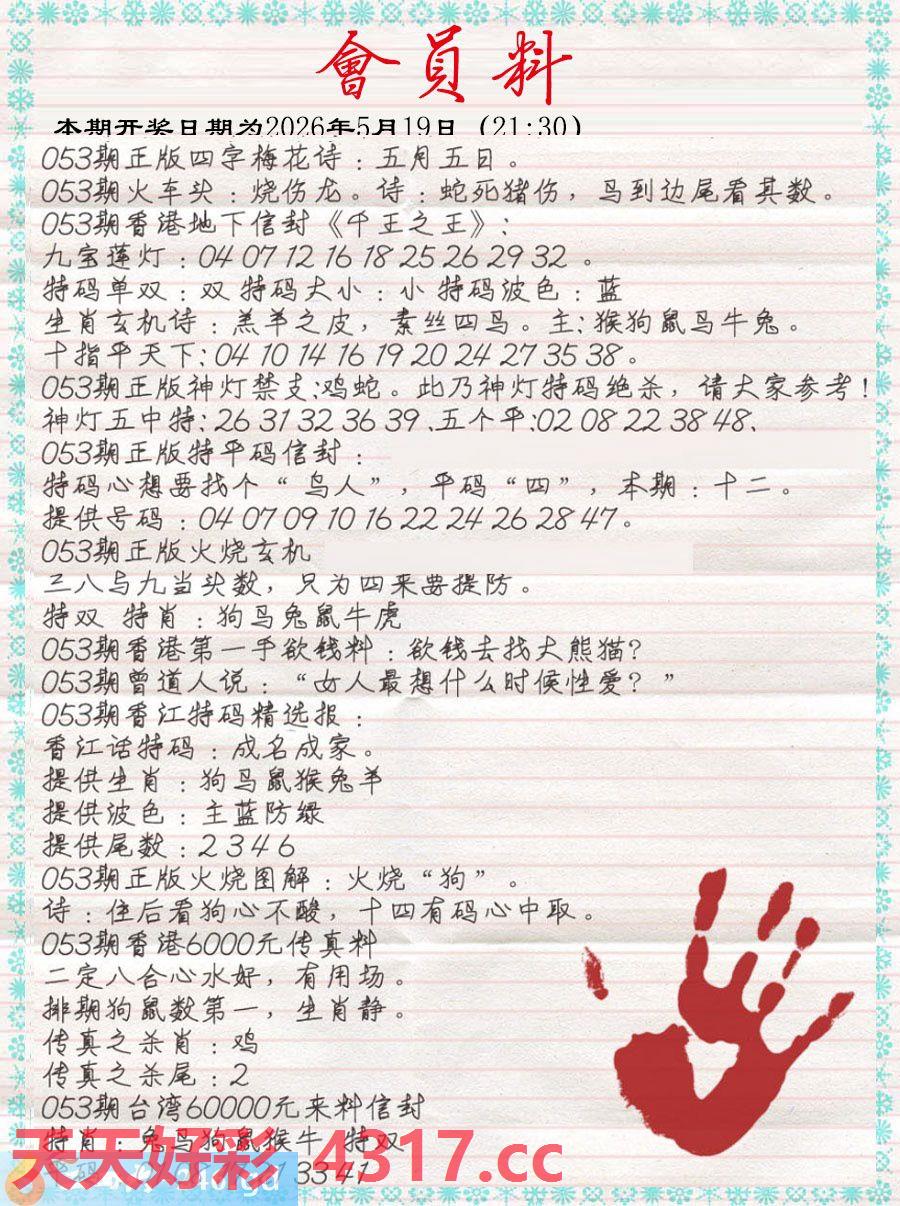 會員料
本期开奖日期为2026年5月19日（21:30）
053期正版四字梅花诗：五月五日。
053期火车头：烧伤龙。诗：蛇死猪伤，鸟到边尾看其数。
053期香港地下信封《千王之王》：
九宝莲灯：04 07 12 16 18 25 26 29 32 。
特码单双：双 特码大小：小 特码波色：蓝
生肖玄机诗：羔羊之皮，素丝四鸟。主：猴狗鼠鸟牛兔。
十指平天下：04 10 14 16 19 20 24 27 35 38。
053期正版神灯禁支：鸡蛇。此乃神灯特码绝杀，请大家参考！
神灯五中特：26 31 32 36 39 、五个平：02 08 22 38 48、
053期正版特平码信封：
特码心想要找个“鸟人”，平码“四”，本期：十二。
提供号码：04 07 09 10 16 22 24 26 28 47。
053期正版火烧玄机
三八与九当头数，只为四来要提防。
特双 特肖：狗鸟兔鼠牛虎
053期香港第一手欲钱料：欲钱去找大熊猫？
053期曾道人说：“女人最想什么时候性爱？”
053期香江特码精选报：
香江话特码：成名成家。
提供生肖：狗鸟鼠猴兔羊
提供波色：主蓝防绿
提供尾数：2 3 4 6
053期正版火烧图解：火烧“狗”。
诗：住后看狗心不酸，十四有码心中取。
053期香港6000元传真料
二定八合心水好，有用场。
排期狗鼠数第一，生肖静。
传真之杀肖：鸡
传真之杀尾：2
053期台湾60000元来料信封
特肖：兔鸟狗鼠猴牛 特双
天天好彩 4317.cc
33 41